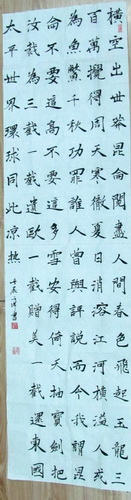 橫空出世莽昆侖閱盡人間春色飛起玉龍三
百萬攪得周天寒徹夏日消溶江河橫溢人或
為魚鱉千秋功罪誰人曾與評說而今我謂昆
侖不要這高不要這多雪安得倚天抽寶劍把
汝裁為三截一截遺歐一截贈美一截還東國
太平世界環球同此涼熱
書